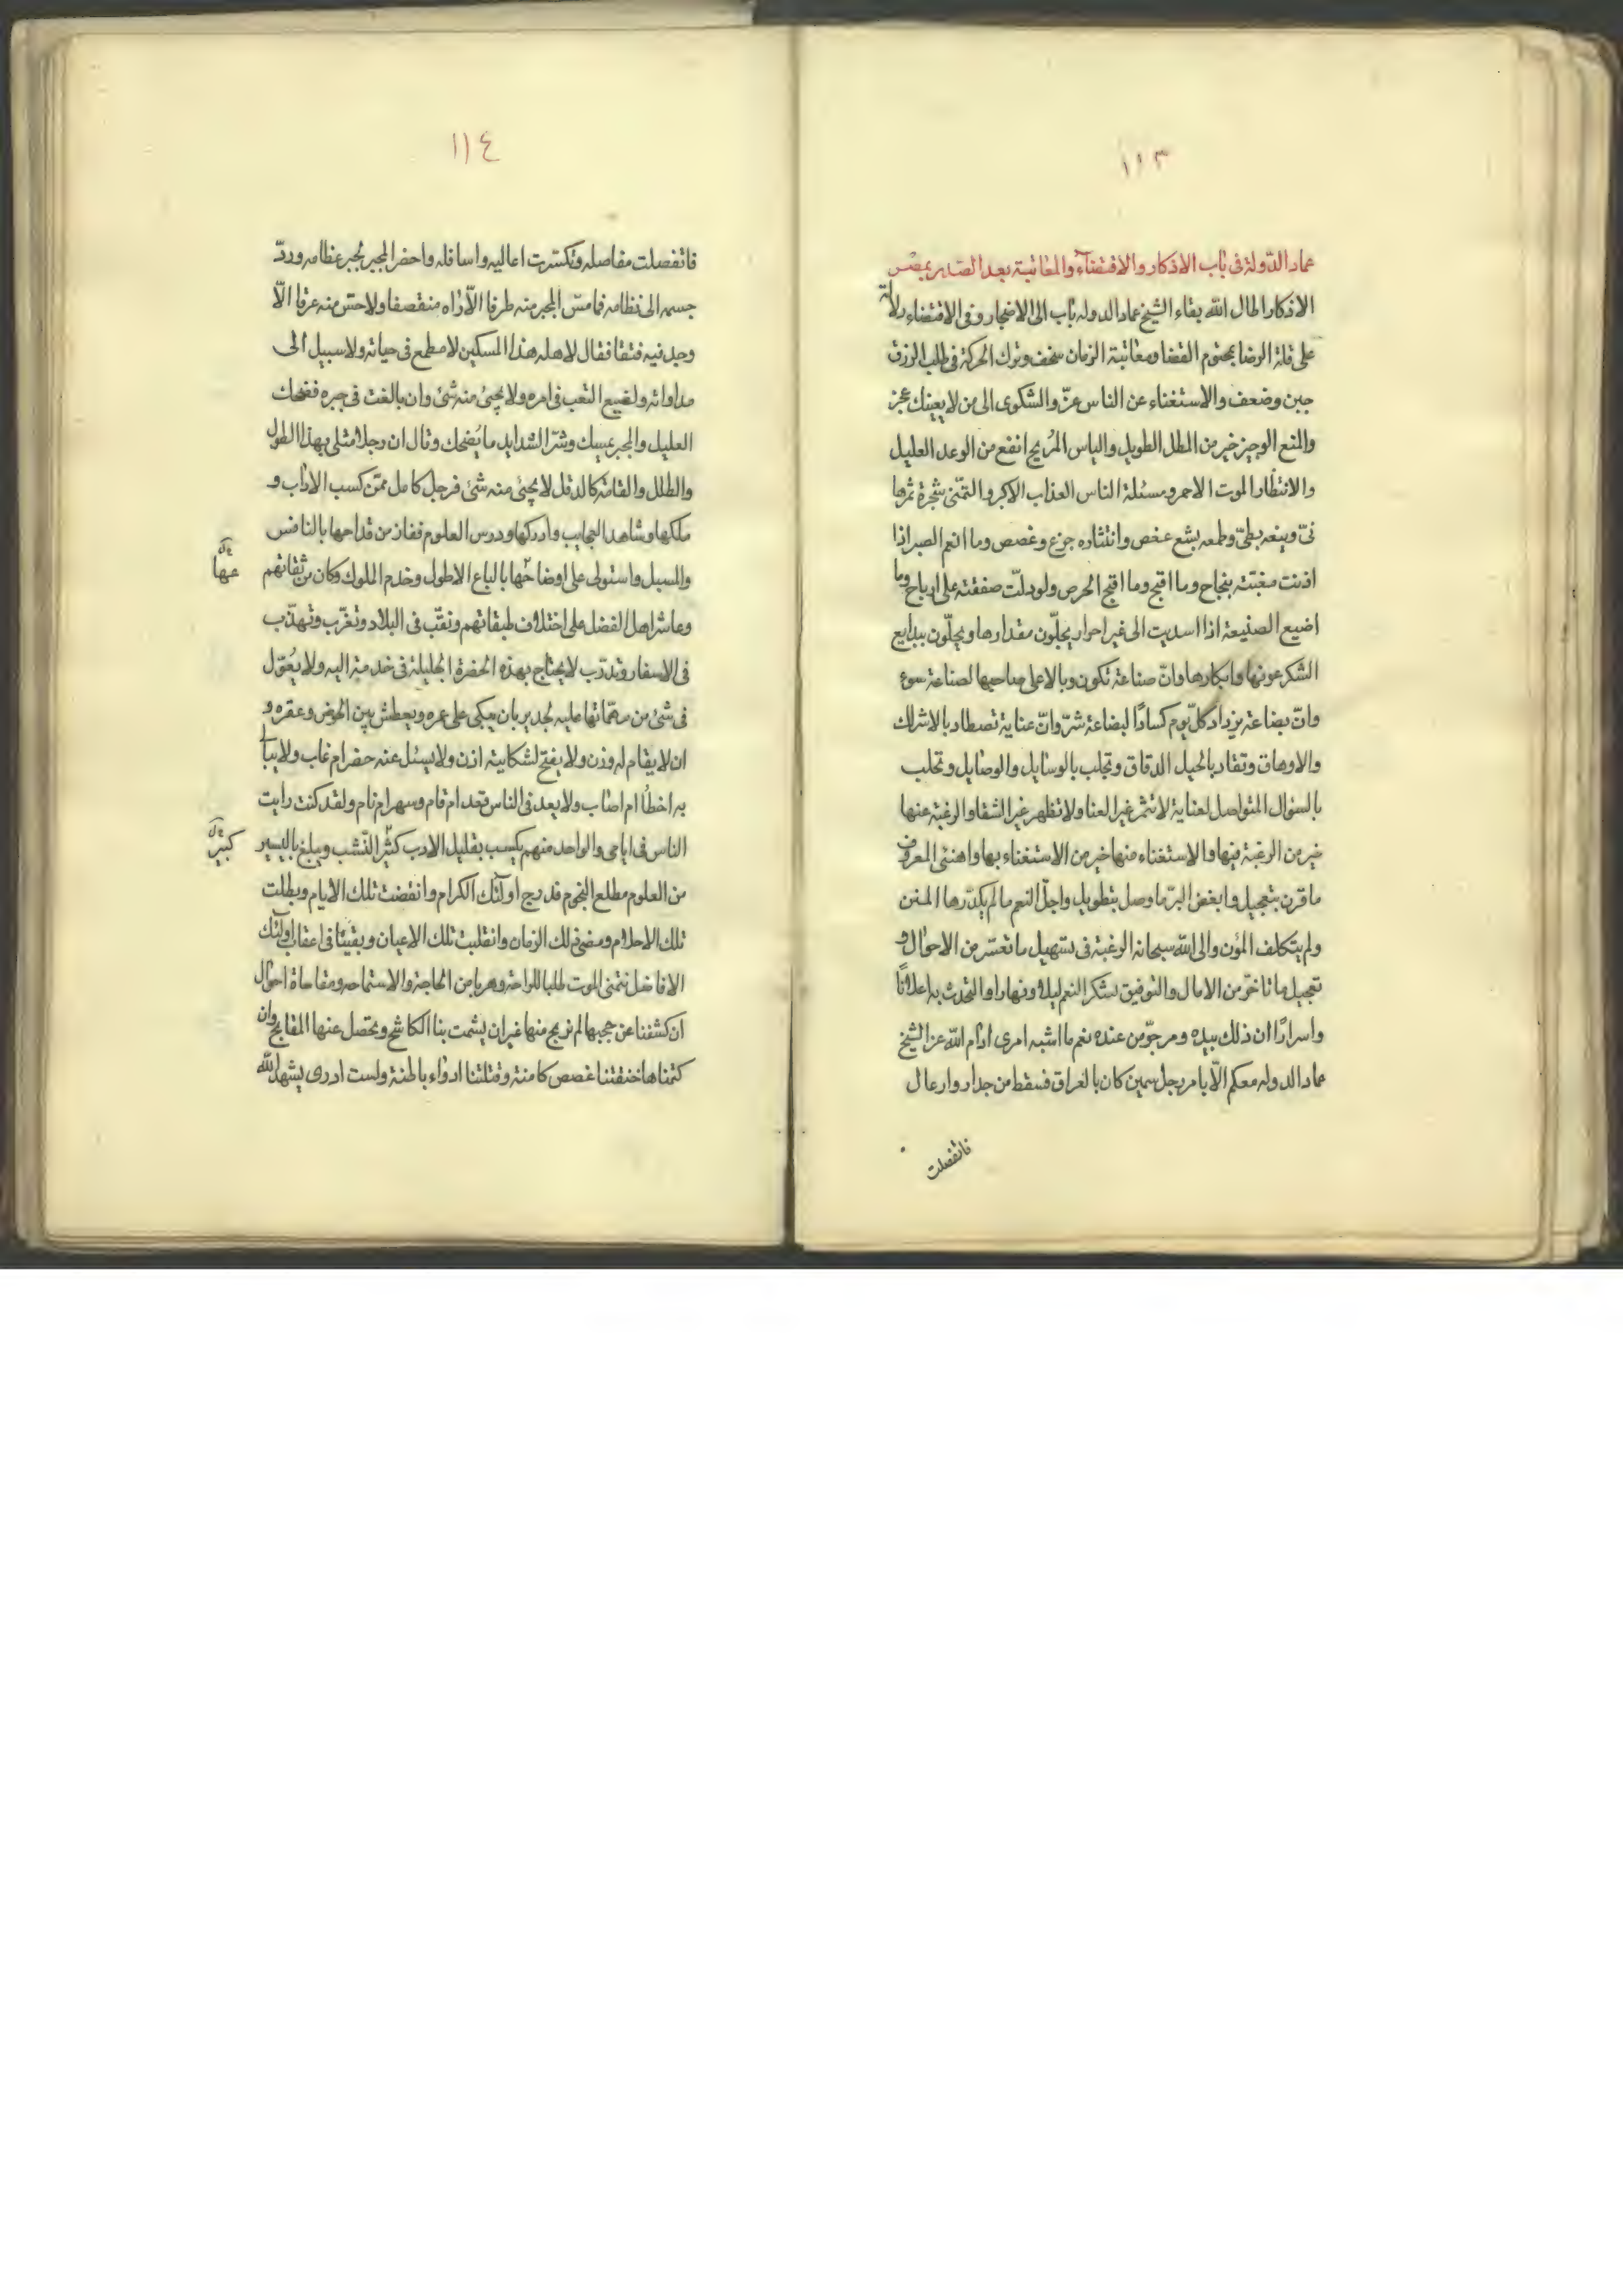 ١١٣
عماد الدّولة فى باب الاذكار والاقتضاء والمعاتبة بعد الصّدر بمصر
الاذكار اطال الله بقاء الشيخ عماد الدوله باب الى الاضجار وفى الاقتضاء دلالة
على قلة الرضا بمحتوم القضا ومعاتبة الزمان سخف وترك الحركة فى طلب الرزق
جبن وضعف والاستغناء عن الناس عزّ والشكوى الى من لا يعينك عجز
والمنع الوجيز خير من المطل الطويل والياس المُريح انفع من الوعد العليل
والانتظار الموت الاحمر ومسئلة الناس العذاب الاكبر والتمنّى شجرة ثمرها
نىّ وينعه بطىّ وطعمه بشع عفص وانتثاره جزع وغصص وما انعم الصبر اذا
اذنت مغبّته بنجاح وما اقبح وما اقبح الحرص ولو دلّت صفقته على ارباح وما
اضيع الصنيعة اذا اسديت الى غير احرار يجلّون مقدارها ويجلّون ببدايع
الشكر عونها وابكارها وانّ صناعة تكون وبالا على صاحبها لصناعة سوء
وانّ بضاعة يزداد كلّ يوم كسادًا لبضاعة شرّ وانّ عناية تصطاد بالاشراك
والاوهاق وتقاد بالحيل الدقاق وتجلب بالوسايل والوصايل وتحلب
بالسؤال المتواصل لعناية لا تثمر غير العنا ولا تظهر غير الشقا والرغبة عنها
خير من الرغبة فيها والاستغناء منها خير من الاستغناء بها واهنئى المعروف
ما قرن بتعجيل وابغض البرّ ما وصل بتطويل واجلّ النعم ما لم يكدّرها المنن
ولم يتكلف المؤن والى الله سبحانه الرغبة فى تسهيل ما تعسّر من الاحوال و
تعجيل ما تاخّر من الامال والتوفيق لشكر النعم ليلا ونهارا والتحدث به اعلانًا
واسرارًا ان ذلك بيده ومرجوّ من عنده نعم ما اشبه امرى ادام الله عز الشيخ
عماد الدوله معكم الّا بامر رجل سمين كان بالعراق فسقط من جدار وارعال
فانفصلت
١١٤
فانفصلت مفاصله وتكسّرت اعاليه واسافله واحضر المجبر لجبر عظامه وردّ
جسمه الى نظامه فما مسّ المجبر منه طرفا الّا رٰاه منقصفا ولا حسّ منه عرقا الّا
وجد فيه فتقا فقال لاهله هذا المسكين لا مطمع فى حياته ولا سبيل الى
مداواته ولضيع التعب فى امره ولا يجىئ منه شئ وان بالغت فى جبره فضحك
العليل والمجبر يمسك وشرّ الشدايد ما يُضحك وقال ان رجلا مثلى بهذا الطول
والطلل والقامة كالدقل لا يجىئ منه شئ فرجل كامل ممّن كسب الاداب و
ملكها وشاهد العجايب وادركها ودرس العلوم ففاز من قداحها بالنافس
والمسبل واستولى على اوضاحّها بالباع الاطول وخدم الملوك وكان من ثقاتهم
عها
وعاشر اهل الفضل على اختلاف طبقاتهم ونقّب فى البلاد وتغرّب وتهذّب
فى الاسفار وتدرّب لا يحتاج بهذه الحضرة الجليلة فى خدمة اليه ولا يُعوّل
فى شئ من مهمّاتها عليه لجدير بان يبكى على عمره ويعطش بين الحوض وعقره و
ان لا يقام له وزن ولا يفتح لشكايته اذن ولا يسئل عنه حضر ام غاب ولا يبأ
به اخطأ ام اصاب ولا يعد فى الناس قعد ام قام وسهر ام نام ولقد كنت رايت
الناس فى ايامى والواحد منهم يكسب بقليل الادب كثير النّشب ويبلغ باليسير
كبير
من العلوم مطلع النجوم قد درج اولٰئك الكرام وانقضت تلك الايام وبطلت
تلك الاحلام ومضى ذلك الزمان وانقلبت تلك الاعيان وبقينا فى اعقاب اولٰئك
الافاضل نتمنى الموت طلبا للراحة وهربا من الحاجة والاستماحه ومقاساة احوال
ان كشفنا عن حجبها لم نربح منها غير ان يشمت بنا الكاشح ويحصل عنها المقابح وان
كتمناها خنقتنا غصص كامنة وقتلتنا ادواء باطنة ولست ادرى يشهد الله